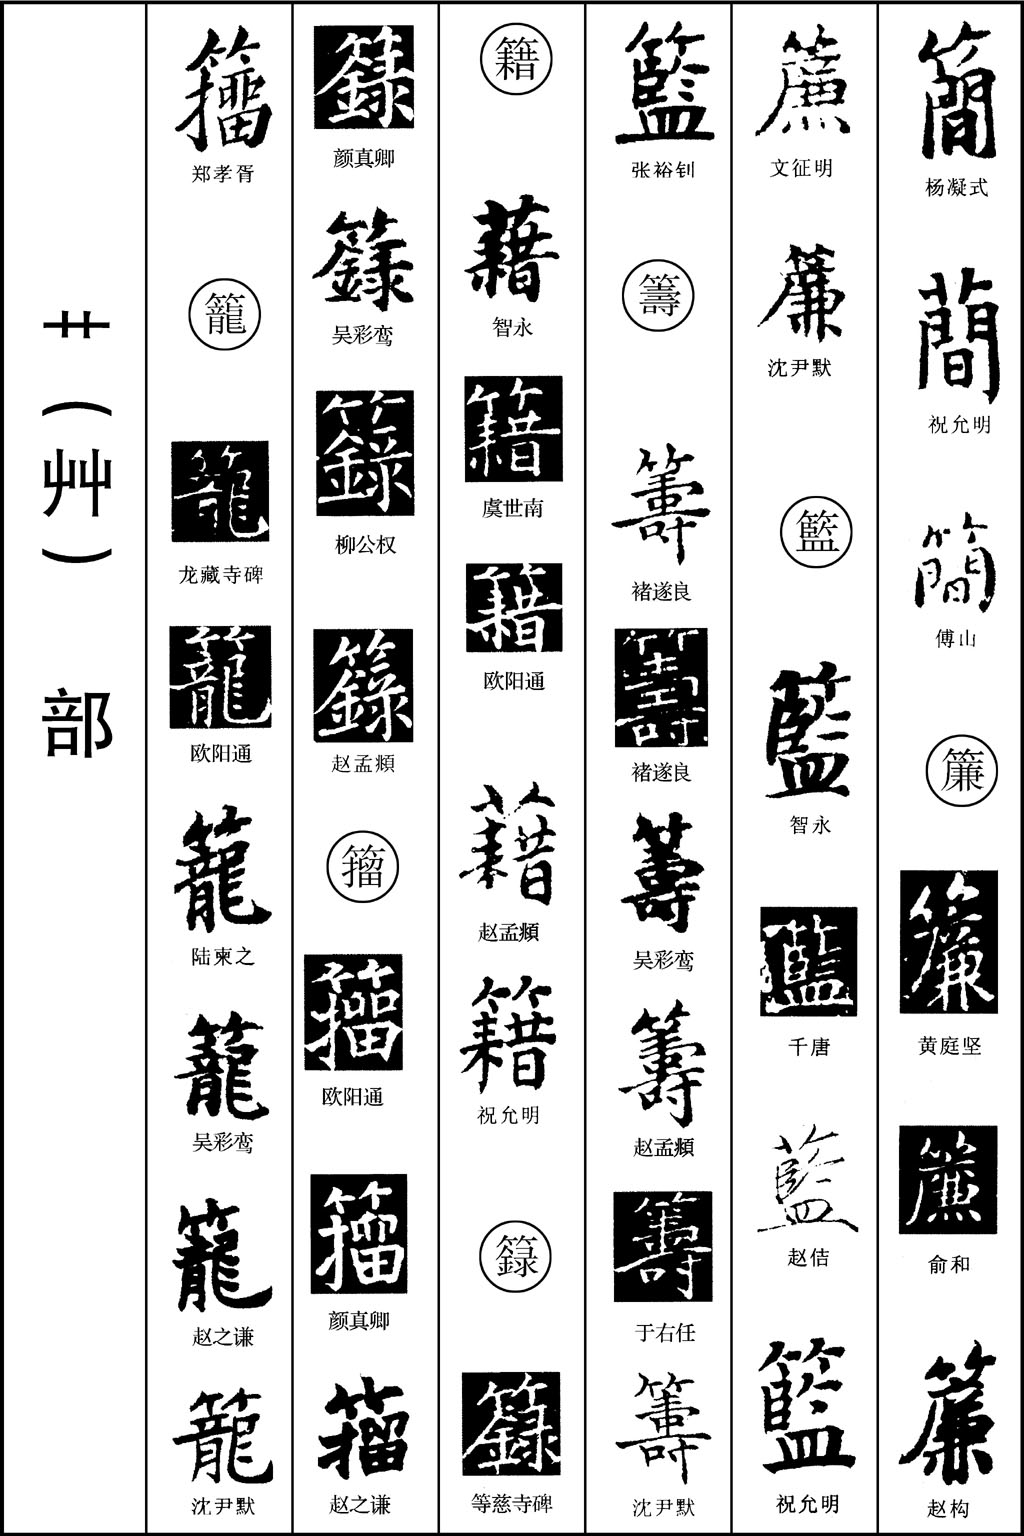 簡
杨凝式
簡
祝允明
簡
傅山
簾
簾
黄庭坚
簾
俞和
簾
赵构
簾
文征明
簾
沈尹默
籃
籃
智永
籃
千唐
籃
赵佶
籃
祝允明
籃
张裕钊
籌
籌
褚遂良
籌
褚遂良
籌
吴彩鸾
籌
赵孟頫
籌
于右任
籌
沈尹默
籍
籍
智永
籍
虞世南
籍
欧阳通
籍
赵孟頫
籍
祝允明
籙
籙
等慈寺碑
籙
颜真卿
籙
吴彩鸾
籙
柳公权
籙
赵孟頫
籀
籀
欧阳通
籀
颜真卿
籀
赵之谦
籀
郑孝胥
籠
籠
龙藏寺碑
籠
欧阳通
籠
陆柬之
籠
吴彩鸾
籠
赵之谦
籠
沈尹默
艹（艸）部